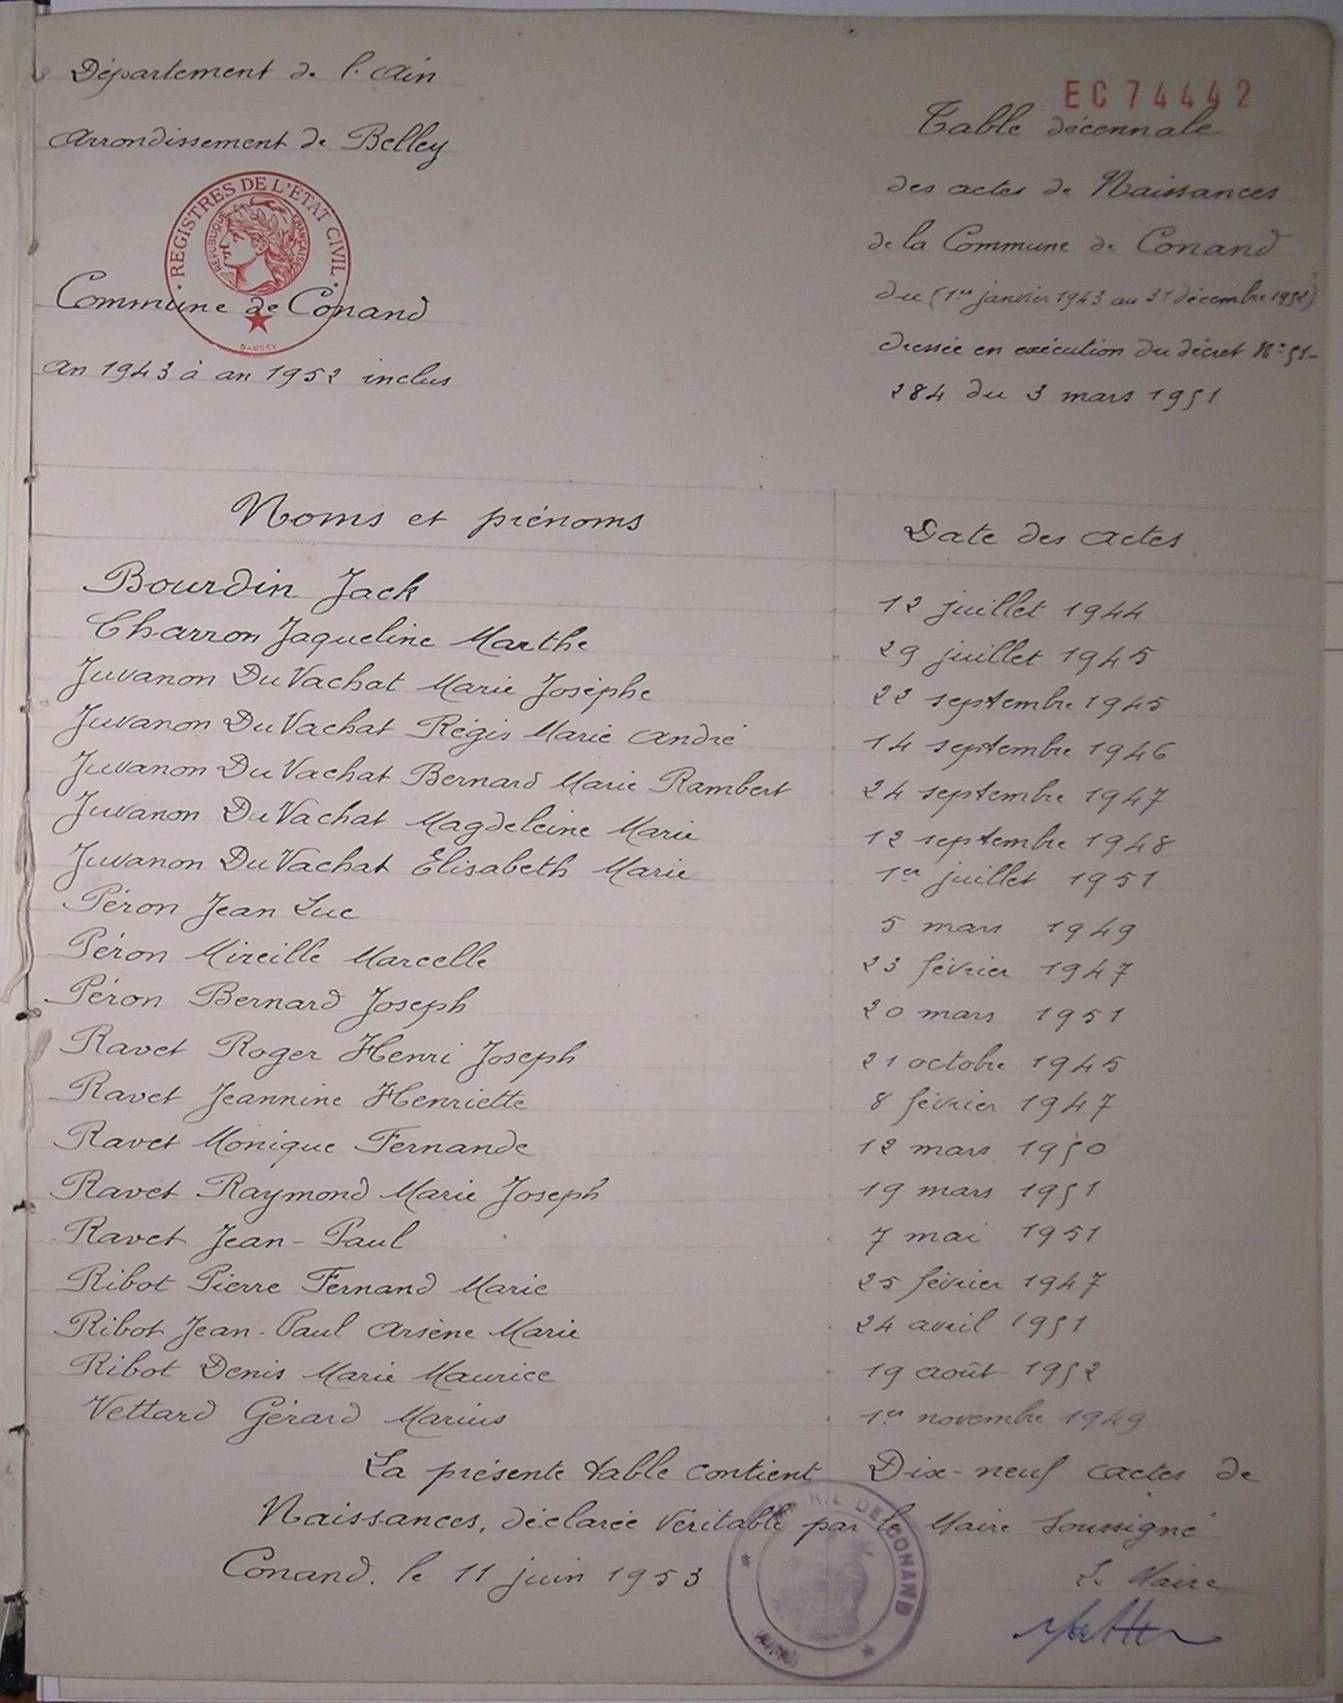 Département de l'Ain
Arrondissement de Belley
REGISTRES DE L'ETAT CIVIL
REPUBLIQUE FRANÇAISE
Commune de Conand
an 1943 à an 1952 inclus
EC 74442
Table décennale
des actes de Naissances
de la Commune de Conand
du (1er janvier 1943 au 31 décembre 1952)
dressée en exécution du décret N° 51-
284 du 3 mars 1951
Noms et prénoms Date des actes
Bourdin Jack 12 juillet 1944
Charron Jaqueline Marthe 29 juillet 1945
Juvanon Du Vachat Marie Josèphe 22 septembre 1945
Juvanon Du Vachat Régis Marie André 14 septembre 1946
Juvanon Du Vachat Bernard Marie Rambert 24 septembre 1947
Juvanon Du Vachat Magdeleine Marie 12 septembre 1948
Juvanon Du Vachat Elisabeth Marie 1er juillet 1951
Péron Jean Luc 5 mars 1949
Péron Mireille Marcelle 23 février 1947
Péron Bernard Joseph 20 mars 1951
Ravet Roger Henri Joseph 21 octobre 1945
Ravet Jeannine Henriette 8 février 1947
Ravet Monique Fernande 12 mars 1950
Ravet Raymond Marie Joseph 19 mars 1951
Ravet Jean-Paul 7 mai 1951
Ribot Pierre Fernand Marie 25 février 1947
Ribot Jean-Paul Arsène Marie 24 avril 1951
Ribot Denis Marie Maurice 19 août 1952
Vettard Gérard Marius 1er novembre 1949
La présente table contient Dix-neuf actes de
Naissances, déclarée véritable par le Maire soussigné
Conand. le 11 juin 1953
Le Maire
MAIRIE DE CONAND
(AIN)